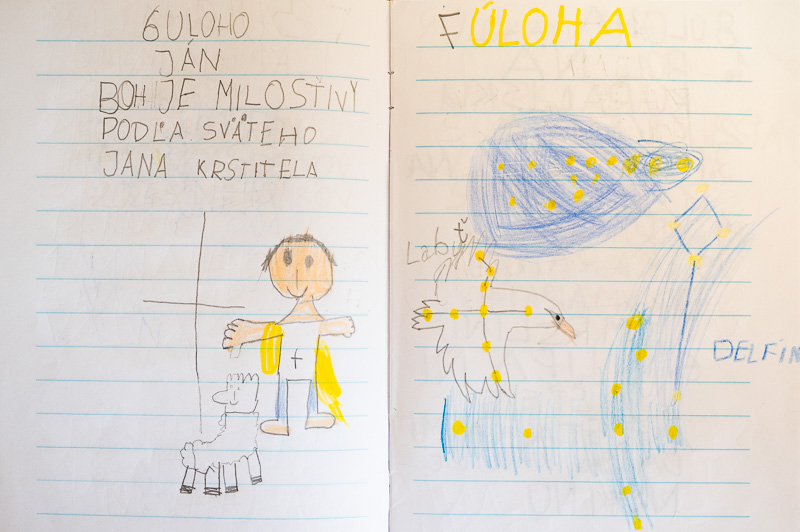 6ULOHO
JÁN
BOH JE MILOSTIVÝ
PODĽA SVÄTEHO
JANA KRSTITELA
FÚLOHA
Labuť
DELFÍN